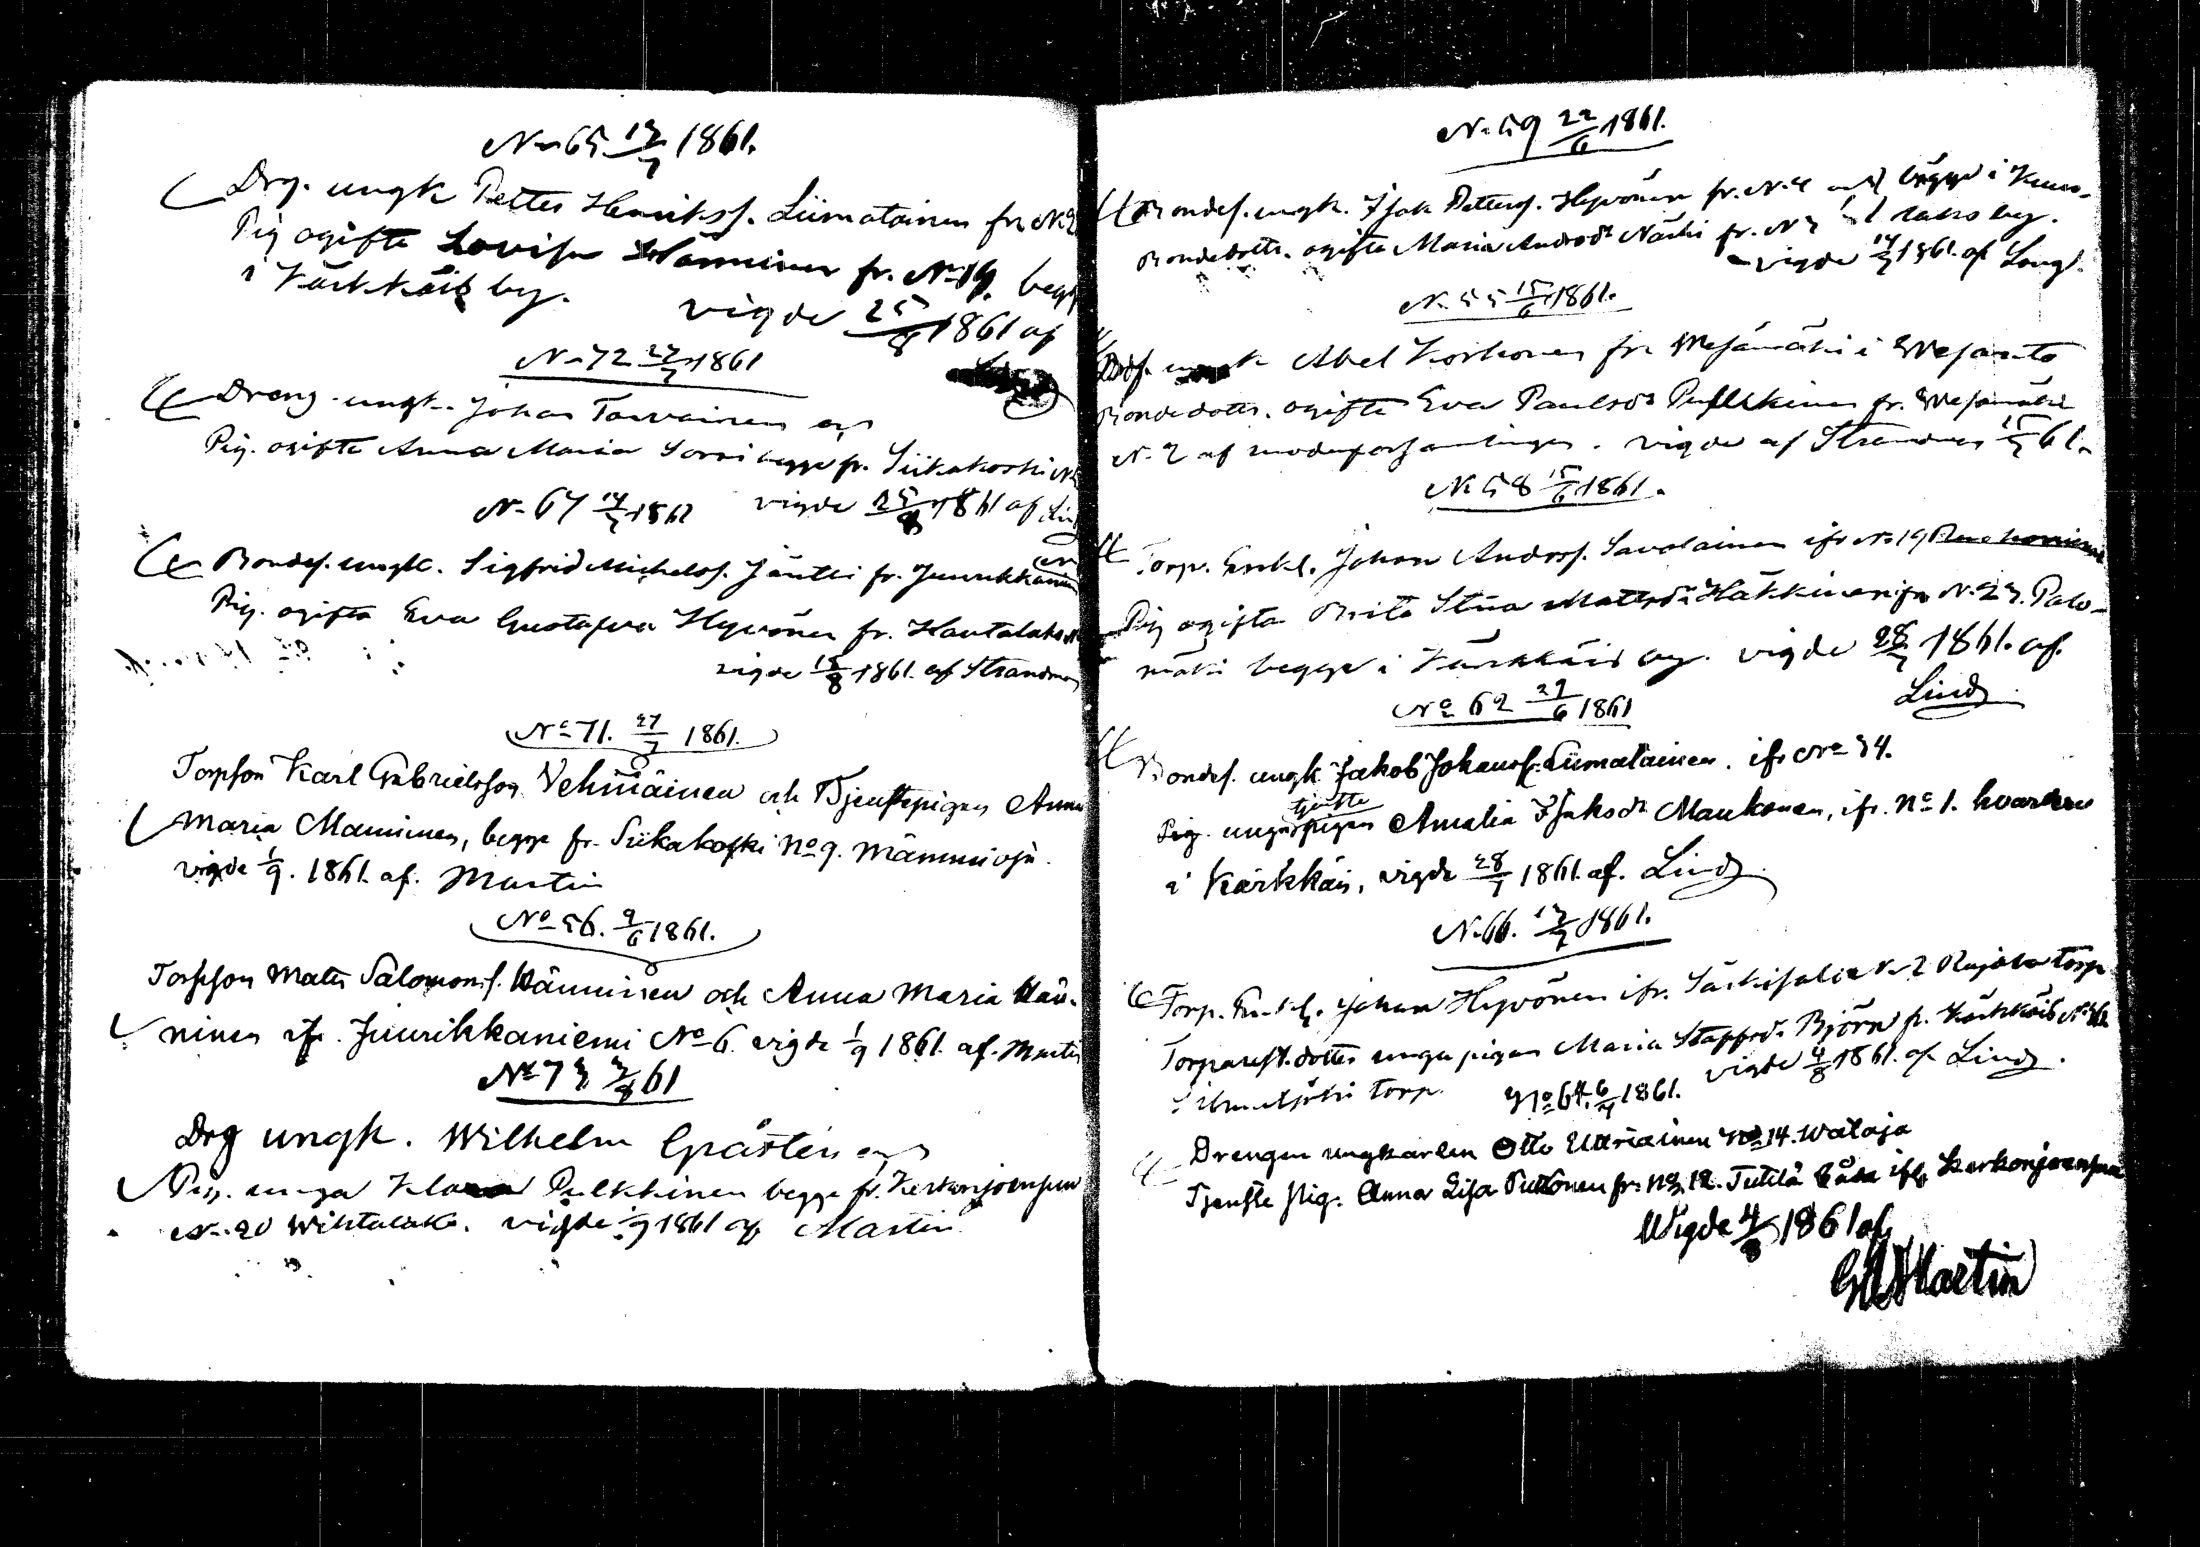 N 65 13/7 1861.
Drg. ungk Petter Henrikss. Liimatainen fr N 2
Pig ogifta Lovisa Hänninen fr. N 19. begg
i Kärkkäis by.
vigde 25/8 1861 af
N 72 27/7 1861
Dreng. ungk. Johan Tarvainen och
Pig. ogifta Anna Maria Sorri begge fr. Siikakoski N
vigde 25/8 1861 af Lind
N 67 14/7 1861
Bondes. ungk. Sigfrid Michelss. Jäntti fr. Juurikkaniemi
Pig. ogifta Eva Gustafva Hyvönen fr. Hautalaks
vigde 15/8 1861. af Strandman
No 71. 27/7 1861.
Torpson Karl Gabrielsson Vehniäinen och Tjenstepigan Anna
Maria Manninen, begge fr. Siikakoski No 9. Mämmioja.
vigde 1/9. 1861. af. Martin
No 56. 9/6 1861.
Torpson Mats Salomons. Hänninen och Anna Maria Hän-
ninen ifr. Juurikkaniemi No 6. vigde 1/9 1861. af. Martin
No 73 3/8 61
Drg ungk. Wilhelm Gråsten och
Pig. unga Klara Pulkkinen begge fr. Kerkonjoensuu
N. 20 Wihtalaks. vigde 1/9 1861 af Martin
N 59 22/6 1861.
Bondes. ungk. Isak Petterss. Hyvönen fr. N. 4 och begge i Kuus-
Bondedottr. ogifta Maria Andersdr Närhi fr. N 3 laks by.
vigde 14/7 1861. af Lind.
N 55 15/6 1861.
Bdes. ungk Abel Korhonen fr Mesämäki i Wesanto
Bondedottr. ogifta Eva Paulsdr Pulkkinen fr. Wesamäki
N. 2 af moderforsamlingen. vigde af Strandman 15/7 61.
N 58 15/6 1861.
Torp. Enkl. Johan Anderss. Savolainen ifr N 19
Pig ogifta Brita Stina Mattsdr Häkkinen ifr N. 23. Palo-
mäki begge i Kärkkäis by. vigde 28/7 1861. af.
Lind
No 62 29/6 1861
Bondes. ungk Jakob Johanss. Liimatainen. ifr No 34.
tjenste
Pig. unga pigan Amalia Isaksdr Maukonen, ifr. No 1. hvardera
i Kärkkäis, vigde 28/7 1861. af. Lind
N. 66. 13/7 1861.
Torp. Enkl. Johan Hyvönen ifr. Särkisalo N 2 Rajala torp
Torparest. dotter unga pigan Maria Staffsdr Björn fr. Kärkkäis No
torp. vigde 4/8 1861. af Lind.
No 64. 6/7 1861.
Drengen ungkarlen Otto Uuriainen No 14. Wataja
Tjenste pig. Anna Lisa Puttonen fr. No 12. Tutilä båda ifr Kerkonjoensuu
Wigde 4/8 1861 af
G A Martin